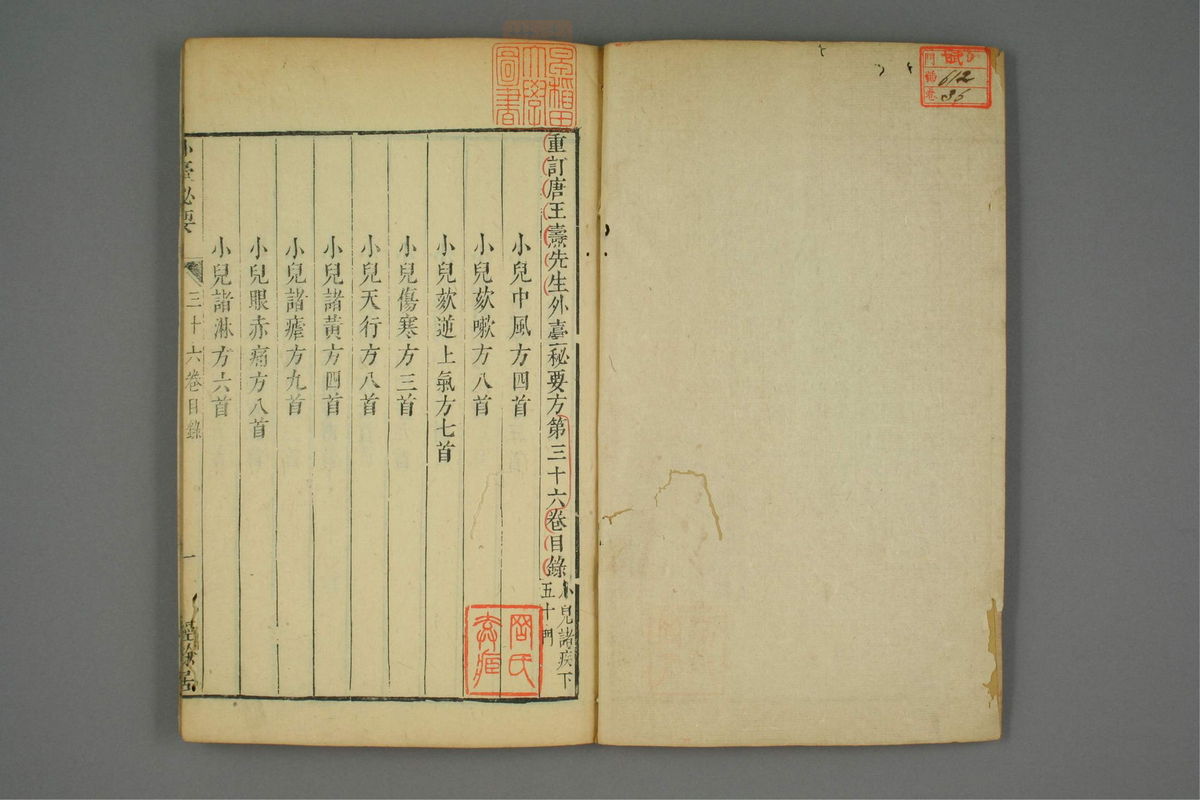 重訂唐王燾先生外臺秘要方第三十六卷目錄
小兒諸疾下
五十門
小兒中風方四首
小兒欬嗽方八首
小兒欬逆上氣方七首
小兒傷寒方三首
小兒天行方八首
小兒諸黃方四首
小兒諸瘧方九首
小兒眼赤痛方八首
小兒諸淋方六首
外臺秘要
三十六卷目錄
一
經餘居
早稻田
大學
圖書
門
號 612
卷 36